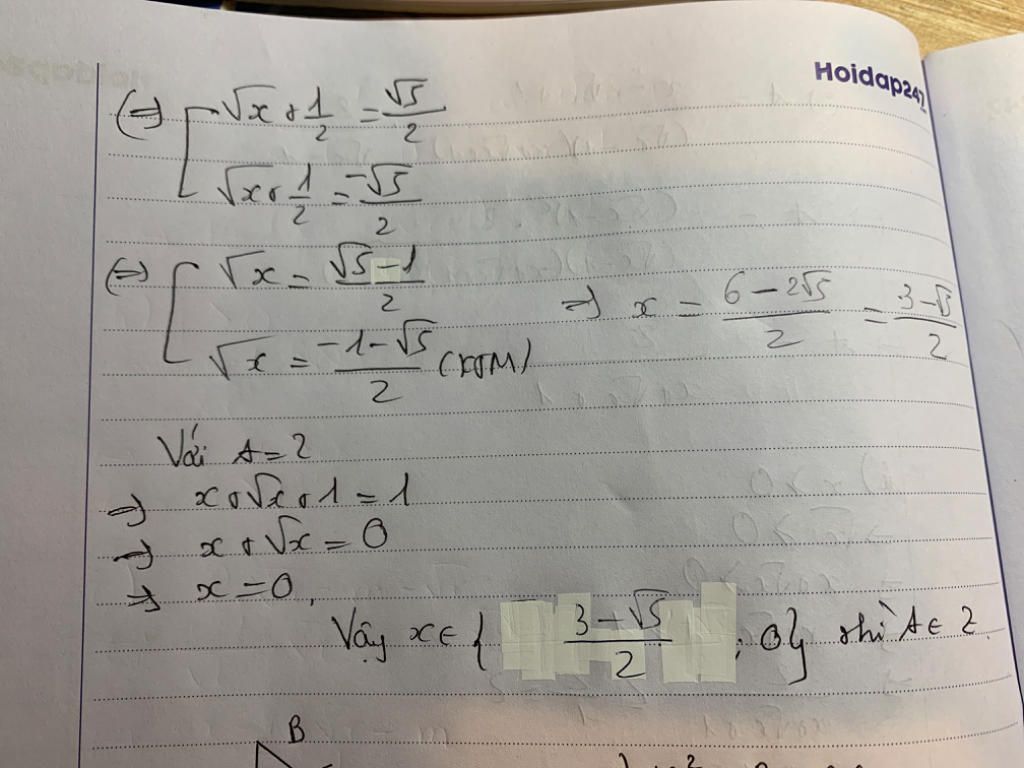 Hoidap247
(=) [ √x + 1/2 = √5/2
√x + 1/2 = -√5/2
(=) [ √x = (√5 - 1)/2
√x = (-1 - √5)/2 (KTM)
=> x = (6 - 2√5)/2 = (3 - √5)/2
Với A = 2
=> x + √x + 1 = 1
=> x + √x = 0
=> x = 0.
Vậy x ∈ { (3 - √5)/2 ; 0} thì A ∈ Z.
B